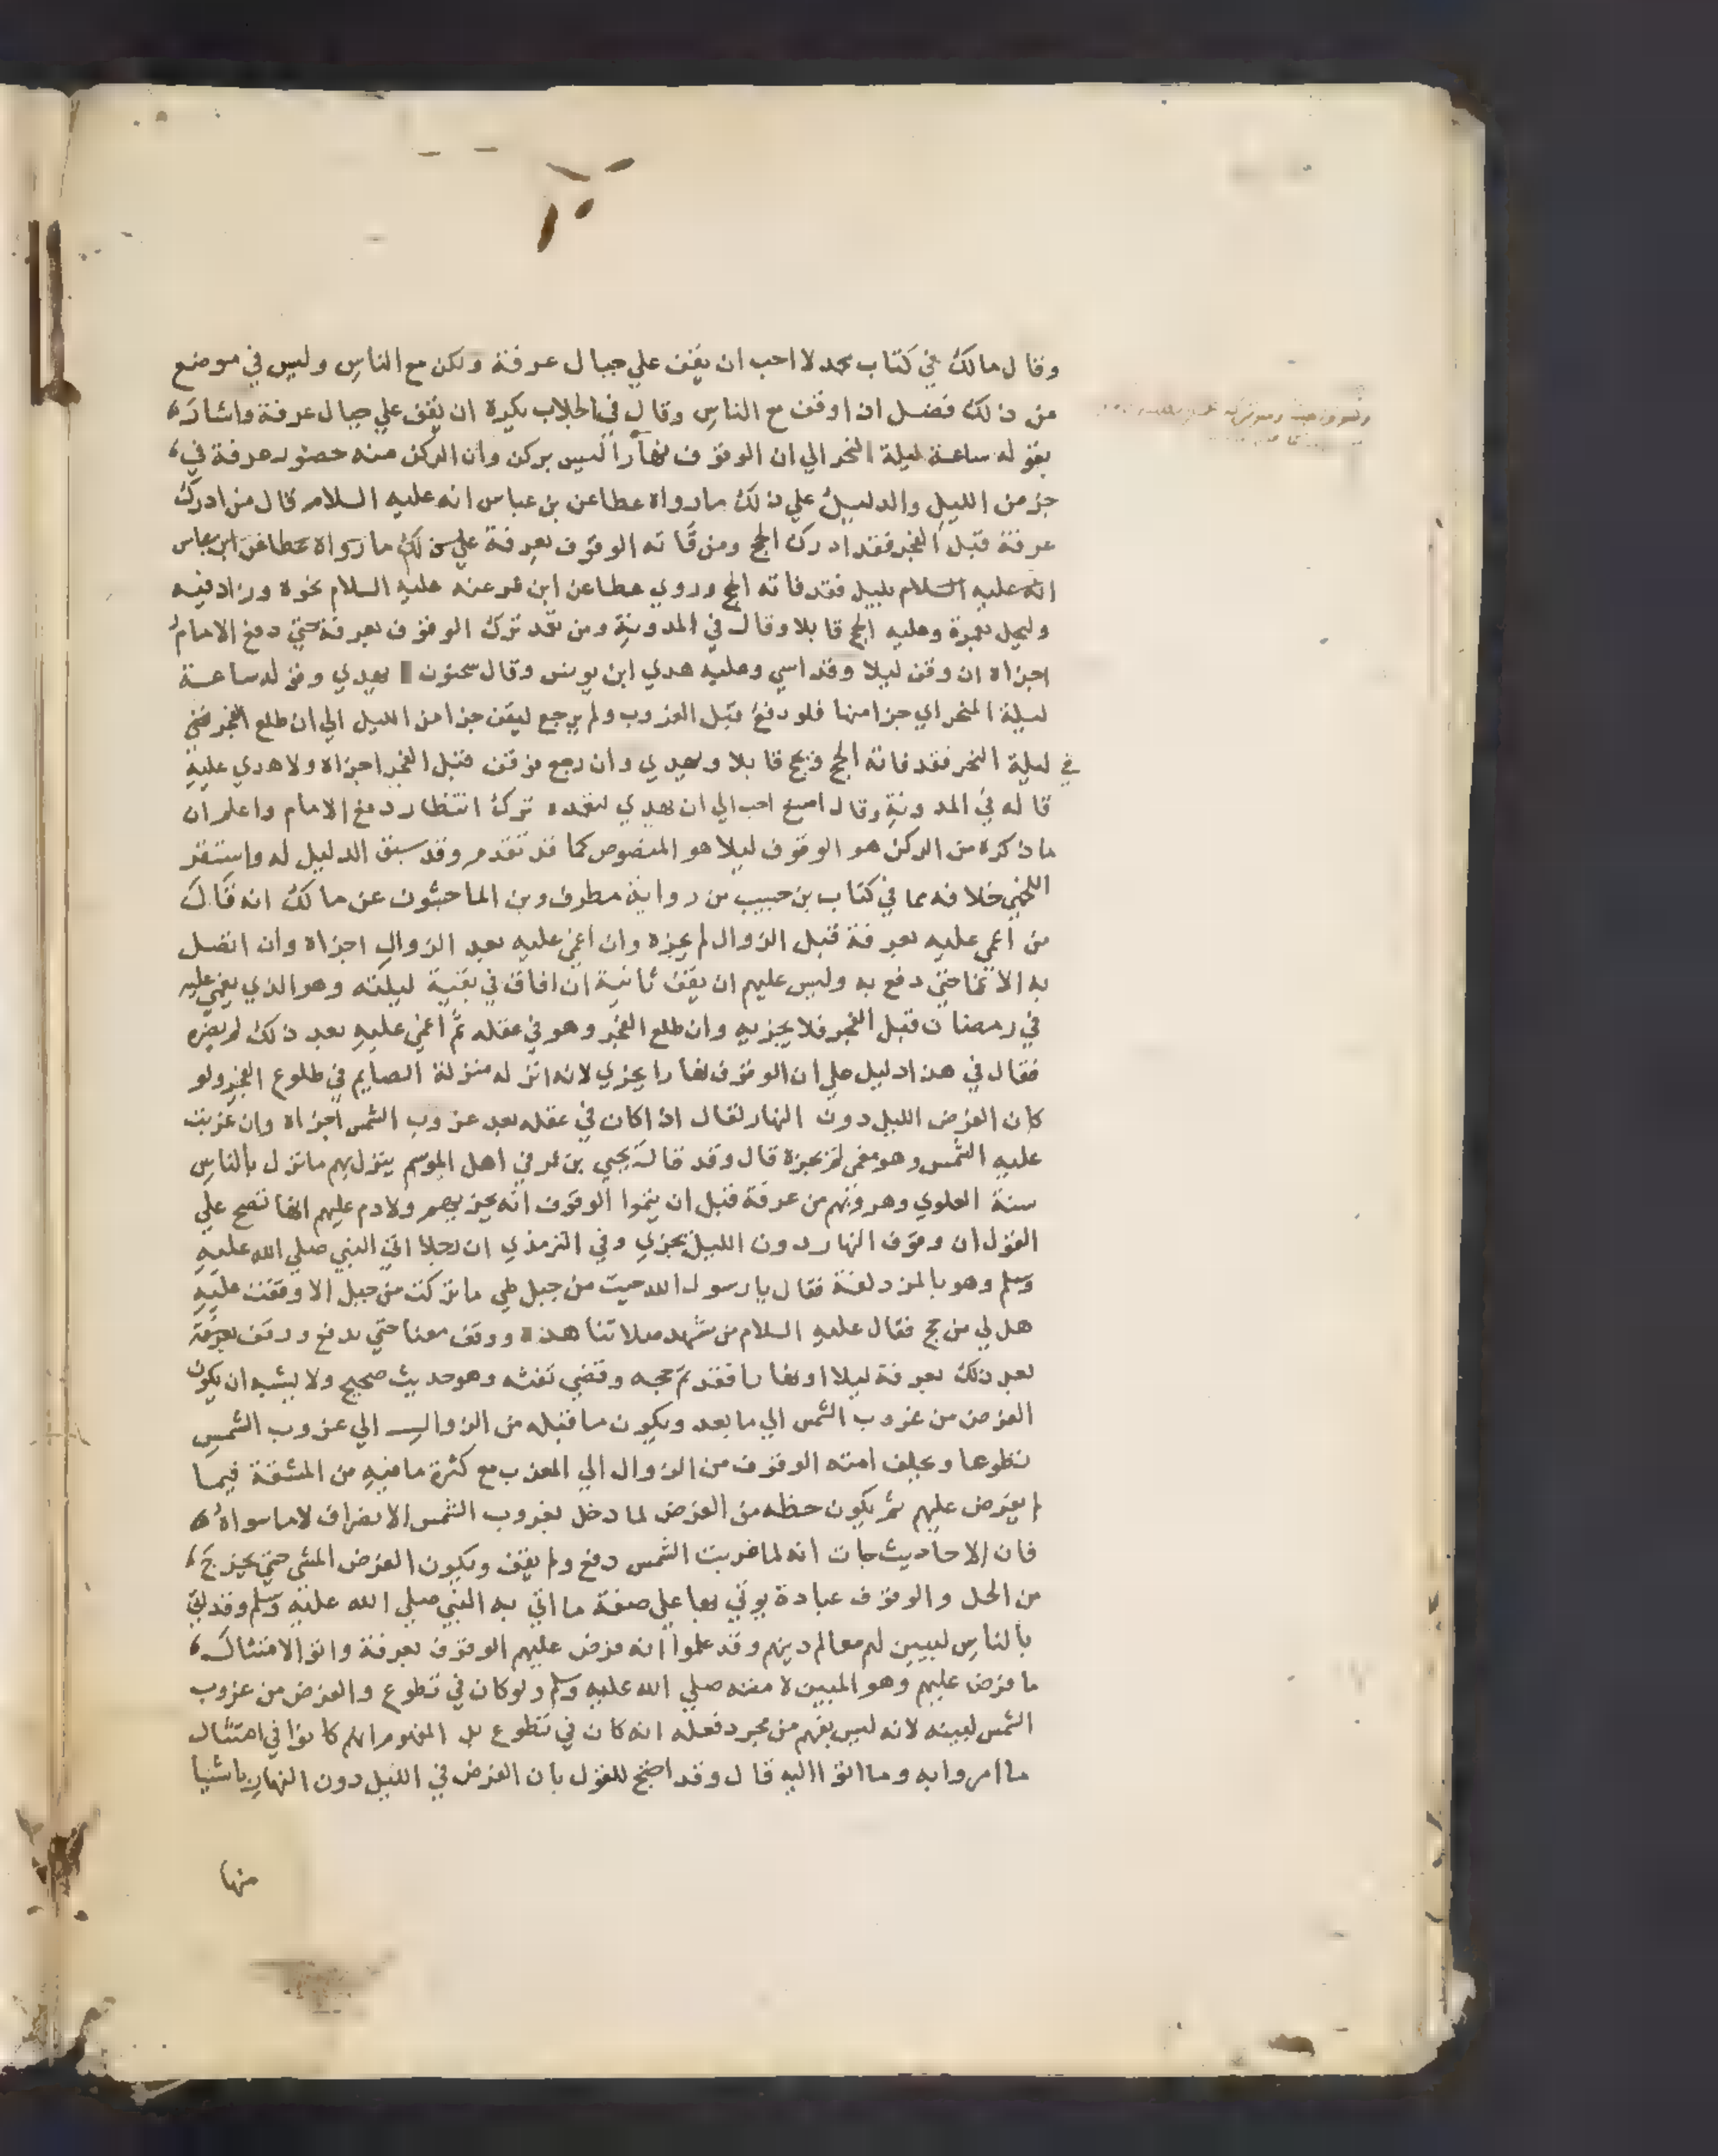 وقال مالك في كتاب محمد لا احب ان يقف علي جبال عرفة ولكن مع الناس وليس في موضع
من ذلك فضل اذا وقف مع الناس وقال في الجلاب يكره ان يقف علي جبال عرفة واشار
بقوله ساعة ليلة النحر الي ان الوقوف نهارا ليس بركن وان الركن منه حضور عرفة في
جز من الليل والدليل علي ذلك ما رواه عطا عن بن عباس انه عليه السلام قال من ادرك
عرفة قبل الفجر فقد ادرك الحج ومن فاته الوقوف بعرفة علي ذلك ما رواه عطا عن ابن عباس
انه عليه السلام بليل فقد فاته الحج وروي عطا عن ابن عمر عنه عليه السلام نحوه وزاد فيه
وليحل بعمرة وعليه الحج قابلا وقال في المدونة ومن تعمد ترك الوقوف بعرفة حتي دفع الامام
اجزاه ان وقف ليلا وقد اسي وعليه هدي ابن يونس وقال سحنون يهدي وقوله ساعة
ليلة النحر اي جزا منها فلو دفع قبل الغروب ولم يرجع ليقف جزا من الليل الي ان طلع الفجر
في ليلة النحر فقد فاته الحج ويحج قابلا ويهدي وان رجع فوقف قبل الفجر اجزاه ولا هدي عليه
قاله في المدونة وقال اصبغ احب الي ان يهدي لتعمده ترك انتظار دفع الامام واعلم ان
ما ذكره من الركن هو الوقوف ليلا هو المنصوص كما قد تقدم وقد سبق الدليل له واستقر
اللخمي خلافه مما في كتاب بن حبيب من رواية مطرف وبن الماجشون عن مالك انه قال
من اغمي عليه بعرفة قبل الزوال لم يجزه وان اغمي عليه بعد الزوال اجزاه وان اتصل
به الاغما حتي دفع به وليس عليهم ان يقف ثانية ان افاق في بقية ليلته وهو الذي يغمي عليه
في رمضان قبل الفجر فلا يجزيه وان طلع الفجر وهو في عقله ثم اغمي عليه بعد ذلك لم يضره
فقال في هذا دليل علي ان الوقوف نهارا يجزي لانه انزله منزلة الصايم في طلوع الفجر ولو
كان الفرض الليل دون النهار لقال اذا كان في عقله بعد غروب الشمس اجزاه وان غربت
عليه الشمس وهو مغمي لم يجزه قال وقد قال يحيي بن عمر في اهل الموسم ينزل بهم ما نزل بالناس
سنة العلوي وهروبهم من عرفة قبل ان يتموا الوقوف انه يجزيهم ولا دم عليهم انها تصح علي
القول ان وقوف النهار دون الليل يجزي وفي الترمذي ان رجلا اتي النبي صلي الله عليه
وسلم وهو بالمزدلفة فقال يا رسول الله جيت من جبل طي ما تركت من جبل الا وقفت عليه
هل لي من حج فقال عليه السلام من شهد صلاتنا هذه ووقف معنا حتي يدفع ووقف بعرفة
بعد ذلك بعرفة ليلا او نهارا فقد تم حجه وقضي تفثه وهو حديث صحيح ولا يشبه ان يكون
الفرض من غروب الشمس الي ما بعد ويكون ما قبله من الزوال الي غروب الشمس
تطوعا ويكلف امته الوقوف من الزوال الي المغرب مع كثرة ما فيه من المشقة فيما
لم يفرض عليهم ثم يكون حظه من الفرض لما دخل بغروب الشمس الانصراف لا ما سواه
فان الاحاديث جات انه لما غربت الشمس دفع ولم يقف ويكون الفرض المشي حتي يخرج
من الحل والوقوف عبادة يوتي بها علي صفة ما اتي به النبي صلي الله عليه وسلم وقد اتي
بالناس ليبين لهم معالم دينهم وقد علموا انه فرض عليهم الوقوف بعرفة واتوا لامتثال
ما فرض عليهم وهو المبين لامته صلي الله عليه وسلم ولو كان في تطوع والفرض من غروب
الشمس لبينه لانه ليس يفهم من مجرد فعله انه كان في تطوع بل المفهوم انهم كانوا في امتثال
ما امروا به وما اتوا اليه قال وقد احتج للقول بان الفرض في الليل دون النهار باشيا
منها